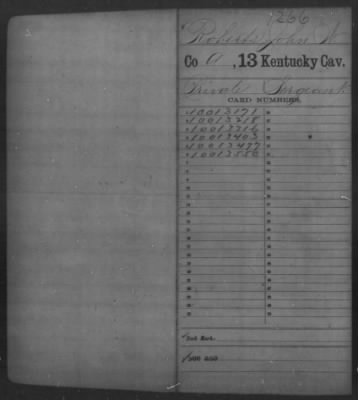 1266
Roberts John W
Co A, 13 Kentucky Cav.
Private Sergeant
CARD NUMBERS.
10013171
10013218
10013316
10013403
10013477
10013550